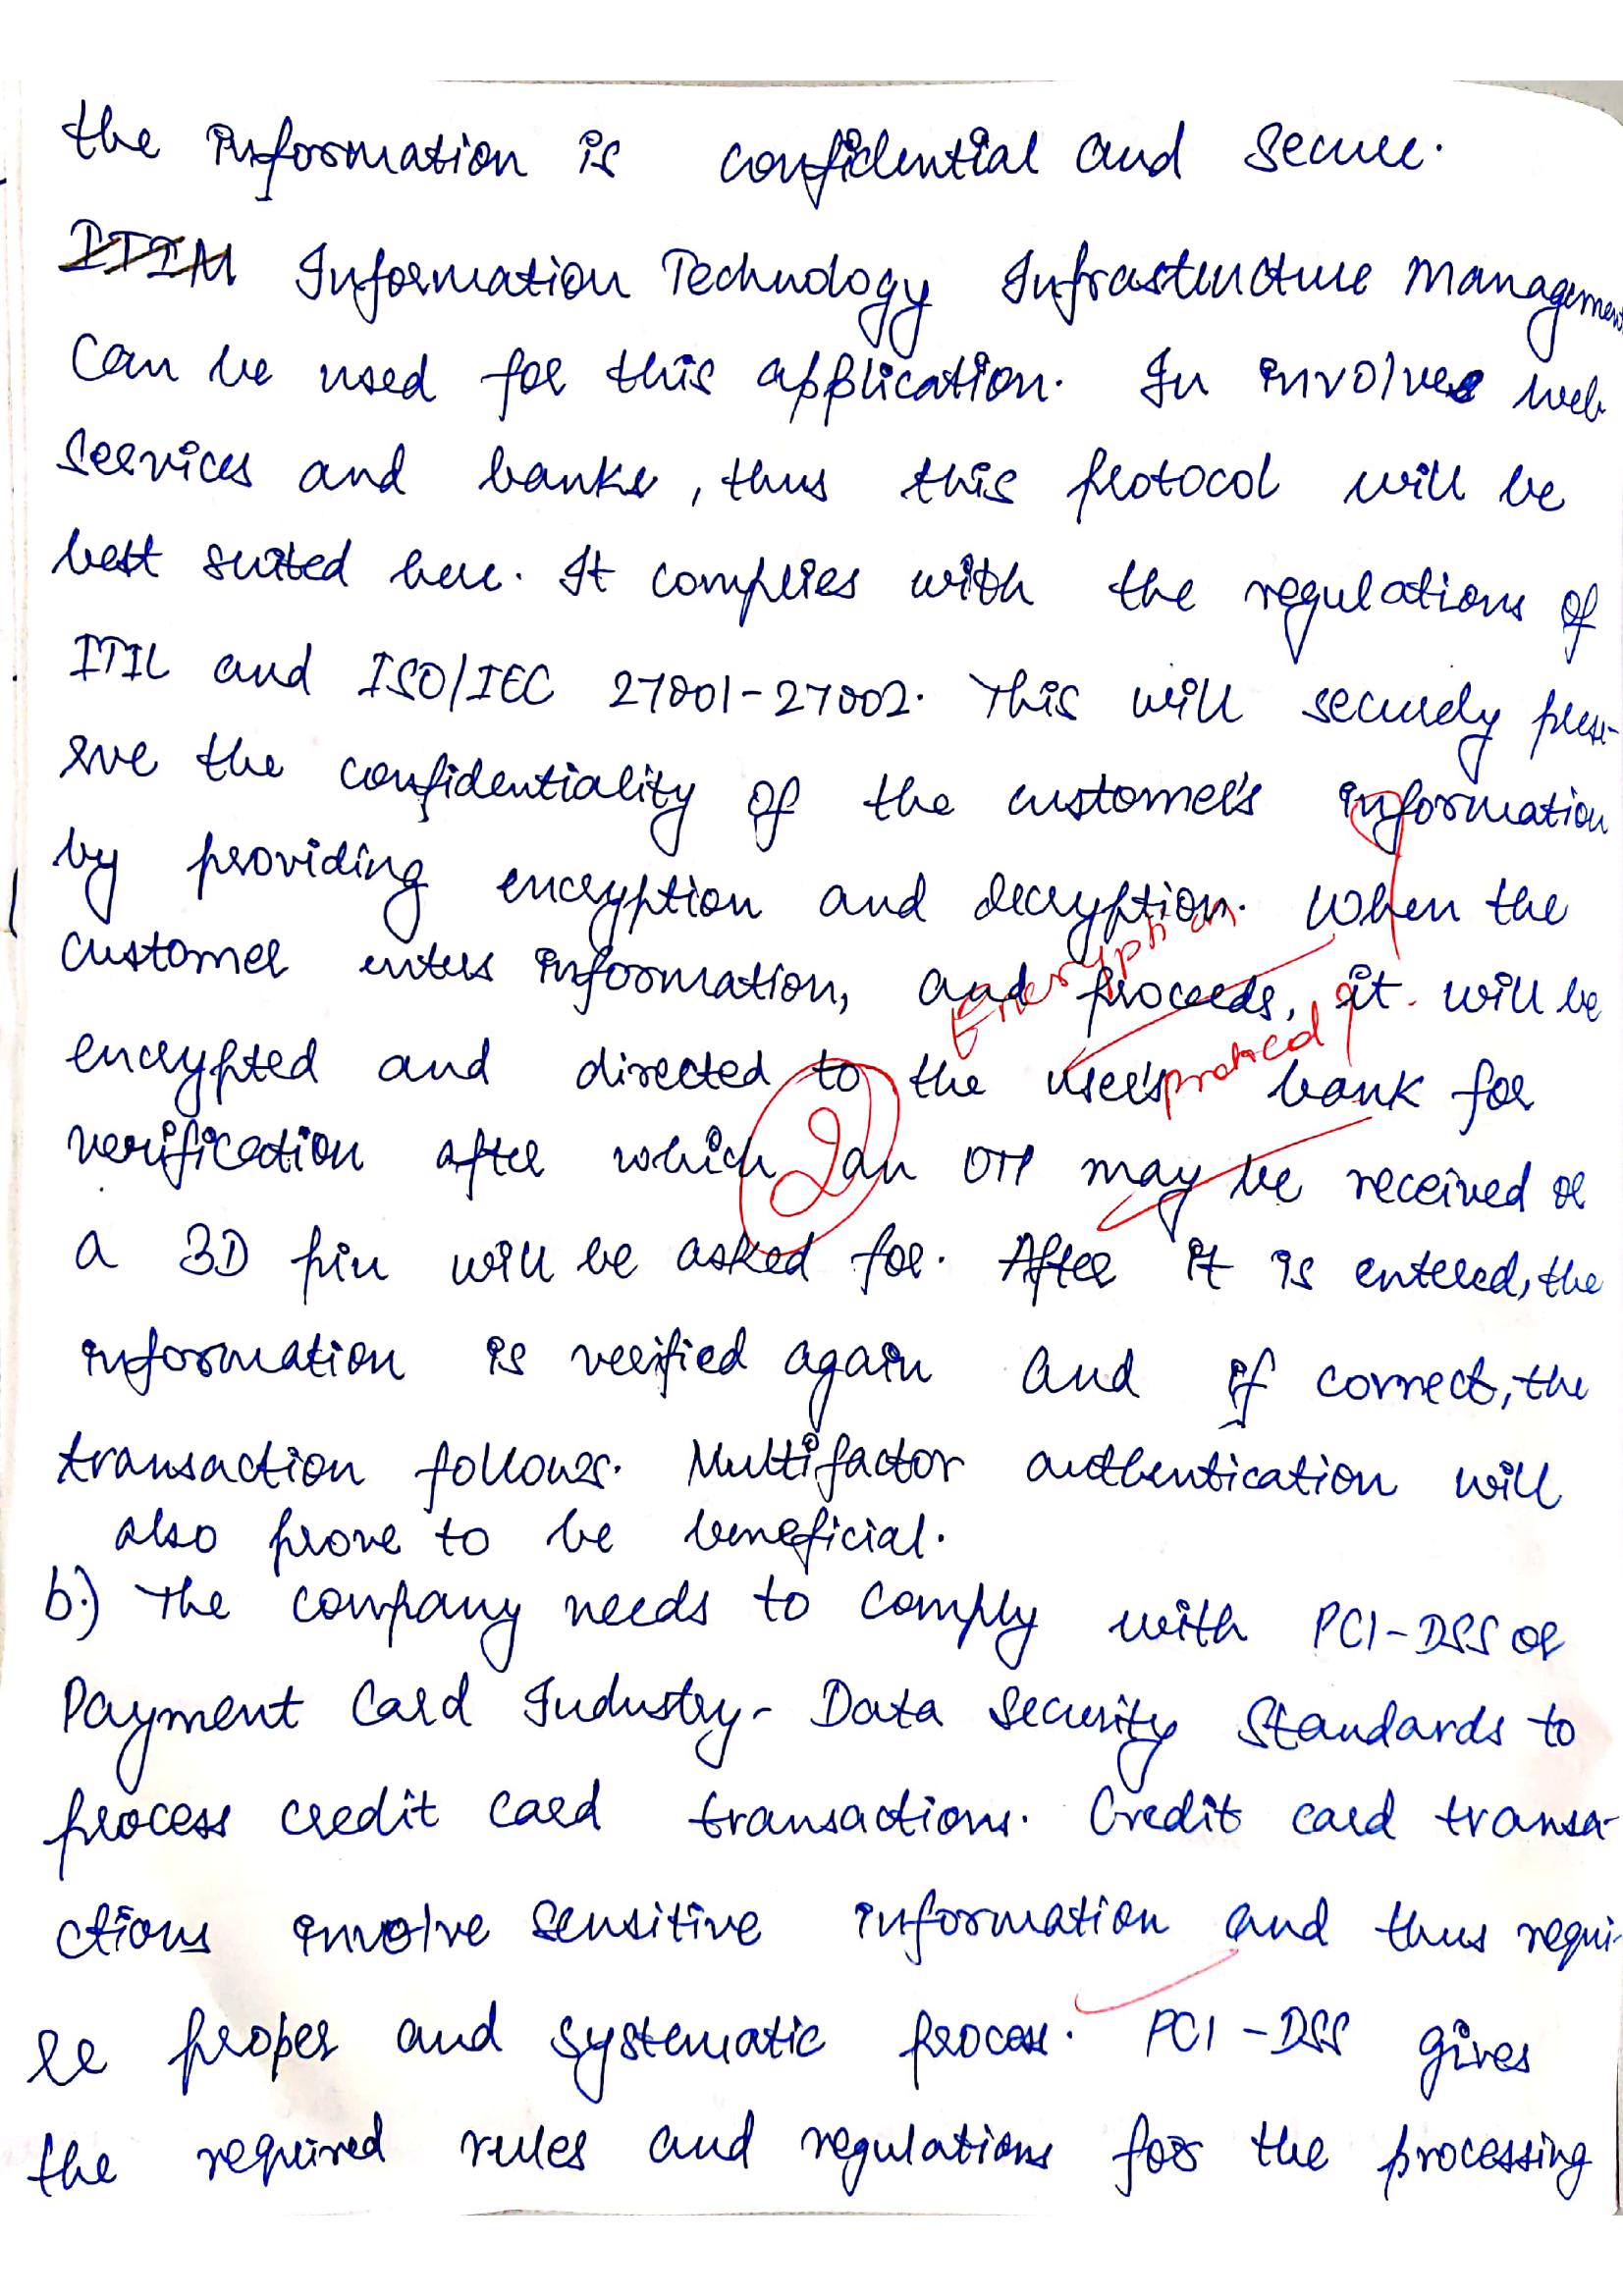 the information is confidential and secure.
ITIM Information Technology Infrastructure Management
can be used for this application. In involves web
services and banks, thus this protocol will be
best suited here. It complies with the regulations of
ITIL and ISO/IEC 27001-27002. This will securely prese-
rve the confidentiality of the customer's information
by providing encryption and decryption. When the
customer enters information, and proceeds, it will be
Encryption
encrypted and directed to the user's bank for
protocol ?
verification after which an OTP may be received or
2
a 3D pin will be asked for. After it is entered, the
information is verified again and if correct, the
transaction follows. Multifactor authentication will
also prove to be beneficial.
b.) The company needs to comply with PCI-DSS or
Payment Card Industry- Data Security Standards to
process credit card transactions. Credit card transa-
ctions involve sensitive information and thus requi-
re proper and systematic process. PCI-DSS gives
the required rules and regulations for the processing